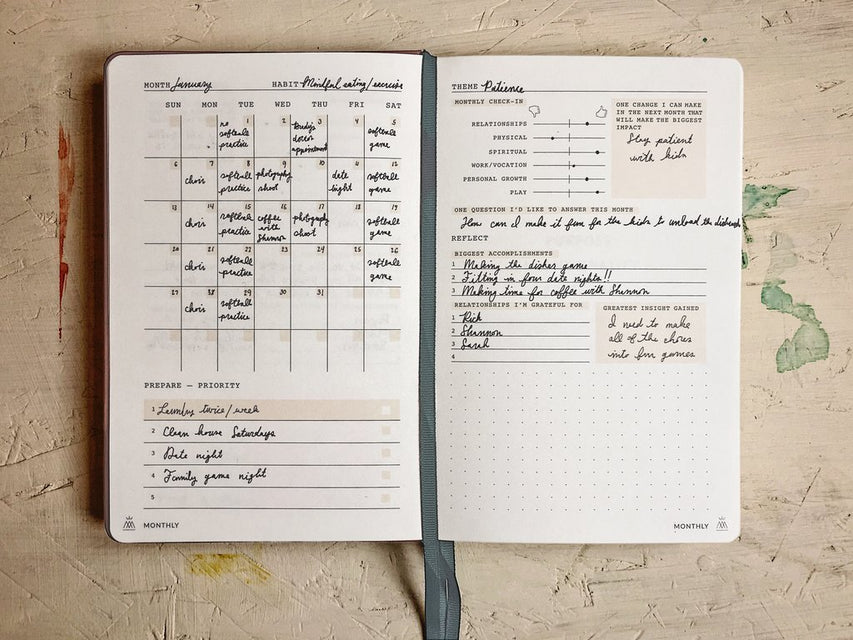 MONTH January HABIT Mindful eating/exercise
SUN MON TUE WED THU FRI SAT
1 2 3 4 5
no
softball
practice
doctor
appointment
softball
game
6 7 8 9 10 11 12
choir
softball
practice
photography
shoot
date
night
softball
game
13 14 15 16 17 18 19
choir
softball
practice
coffee
with
Shannon
photography
shoot
softball
game
20 21 22 23 24 25 26
choir
softball
practice
softball
game
27 28 29 30 31
choir
softball
practice
PREPARE — PRIORITY
1 Laundry twice/week
2 Clean house Saturdays
3 Date night
4 Family game night
5
MONTHLY
THEME Patience
MONTHLY CHECK-IN
RELATIONSHIPS
PHYSICAL
SPIRITUAL
WORK/VOCATION
PERSONAL GROWTH
PLAY
ONE CHANGE I CAN MAKE
IN THE NEXT MONTH THAT
WILL MAKE THE BIGGEST
IMPACT
Stay patient
with kids
ONE QUESTION I'D LIKE TO ANSWER THIS MONTH
How can I make it fun for the kids to unload the
REFLECT
BIGGEST ACCOMPLISHMENTS
1 Making the dishes game
2 Fitting in four date nights!!
3 Making time for coffee with Shannon
RELATIONSHIPS I'M GRATEFUL FOR
1 Rick
2 Shannon
3 Sarah
4
GREATEST INSIGHT GAINED
I need to make
all of the chores
into fun games
MONTHLY